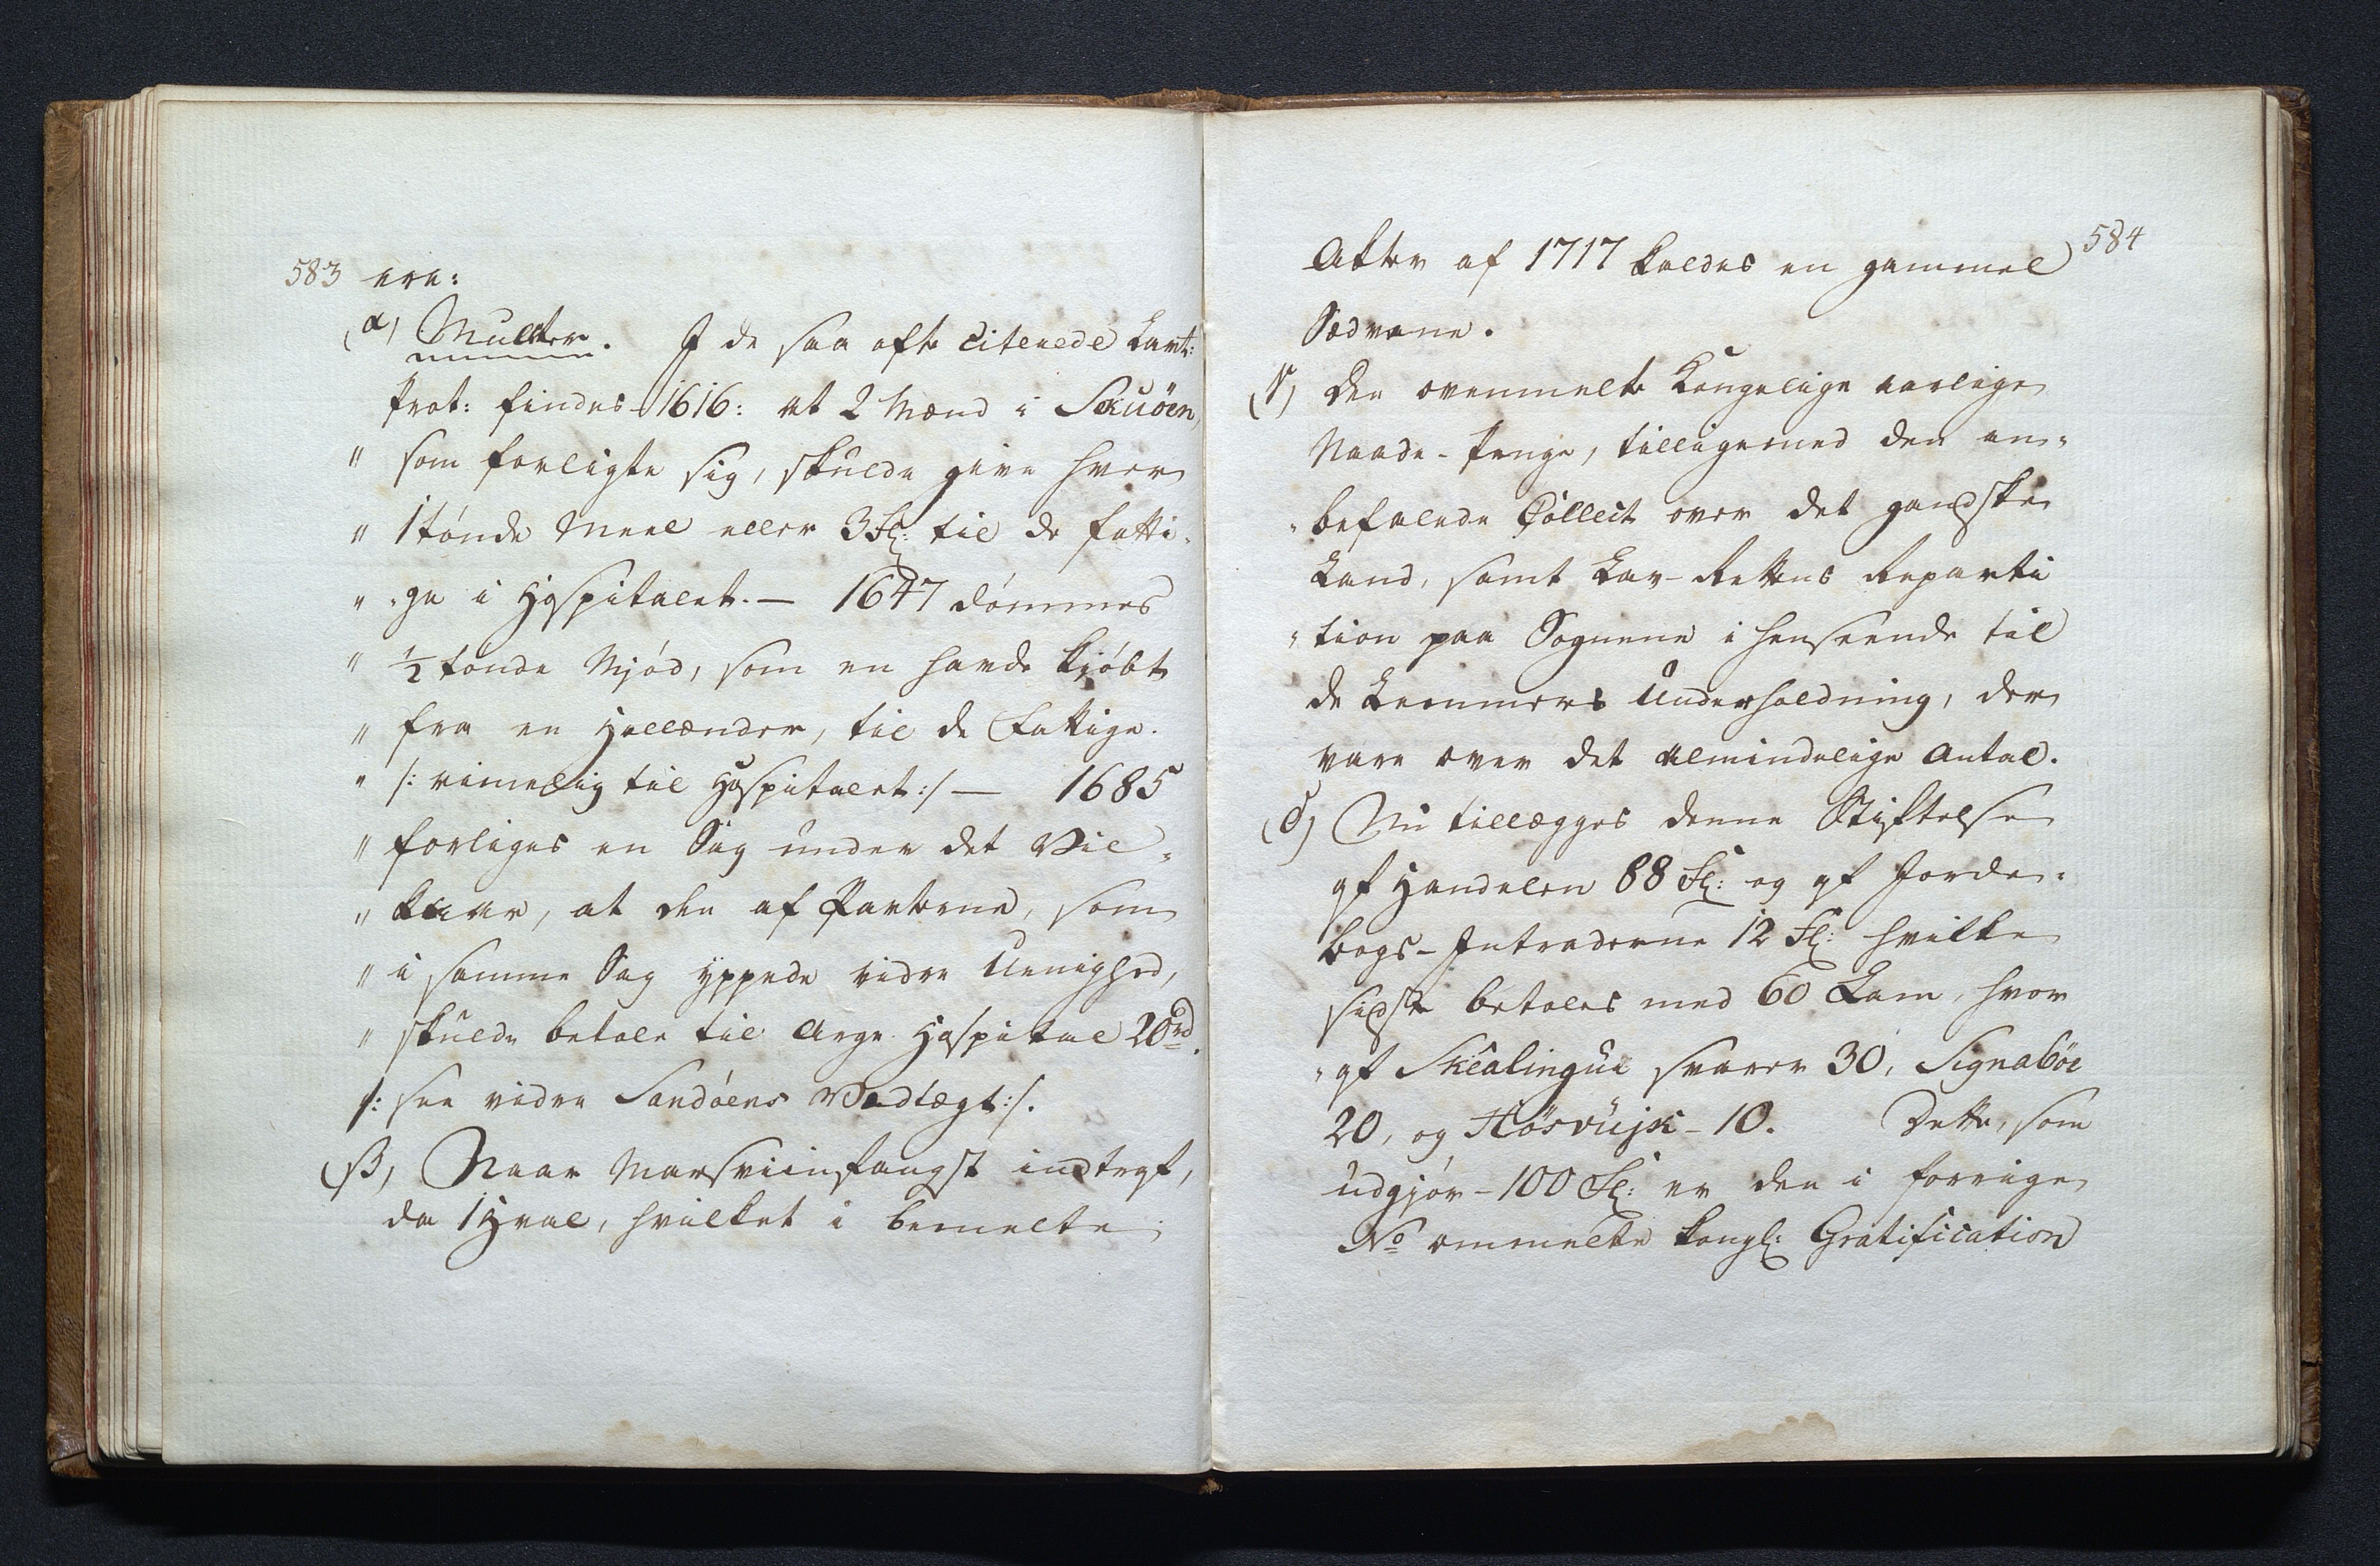 583 ere:
(α) Mulcter. I de saa ofte citerede Lavt:
Prot: findes 1616: at 2 Mænd i Skuöen,
" som forligte sig, skulde give hver
" 1 tönde Meel eller 3 Fl: til de fatti-
" -ge i Hospitalet. — 1647 dömmes
" ½ tonde Mjöd, som en havde kjöbt
" fra en Hollænder, til de Fattige.
" /: rimelig til Hospitalet :/ — 1685
" forliges en Sag under det Vil-
" kaar, at den af Parterne, som
" i samme Sag yppede vidre Uenighed,
" skulde betale til Arge Hospital 20 rd.
/: see vidre Sandöens Vedtægt :/.
(β) Naar Marsviinfangst indtraf,
da 1 Hval, hvilket i bemelte
584
Akter af 1717 kaldes en gammel
Sædvane.
(γ) Den ovenmelte Kongelige aarlige
Naade-Penge, tilligemed den an-
-befalede Collect over det gandske
Land, samt Lav-Rettens Reparti
-tion paa Sognene i henseende til
de Lemmers Underholdning, der
vare over det almindelige Antal.
(δ) Nu tillægges denne Stiftelse
af Handelen 88 Fl: og af Jorde-
bogs-Intraderne 12 Fl: hvilke
sidste betales med 60 Lam, hvor
-af Skéalingue svarer 30, Signaböe
20, og Hósvüjk - 10. Dette, som
udgjör - 100 Fl: er den i forrige
No ommelte kongl: Gratification